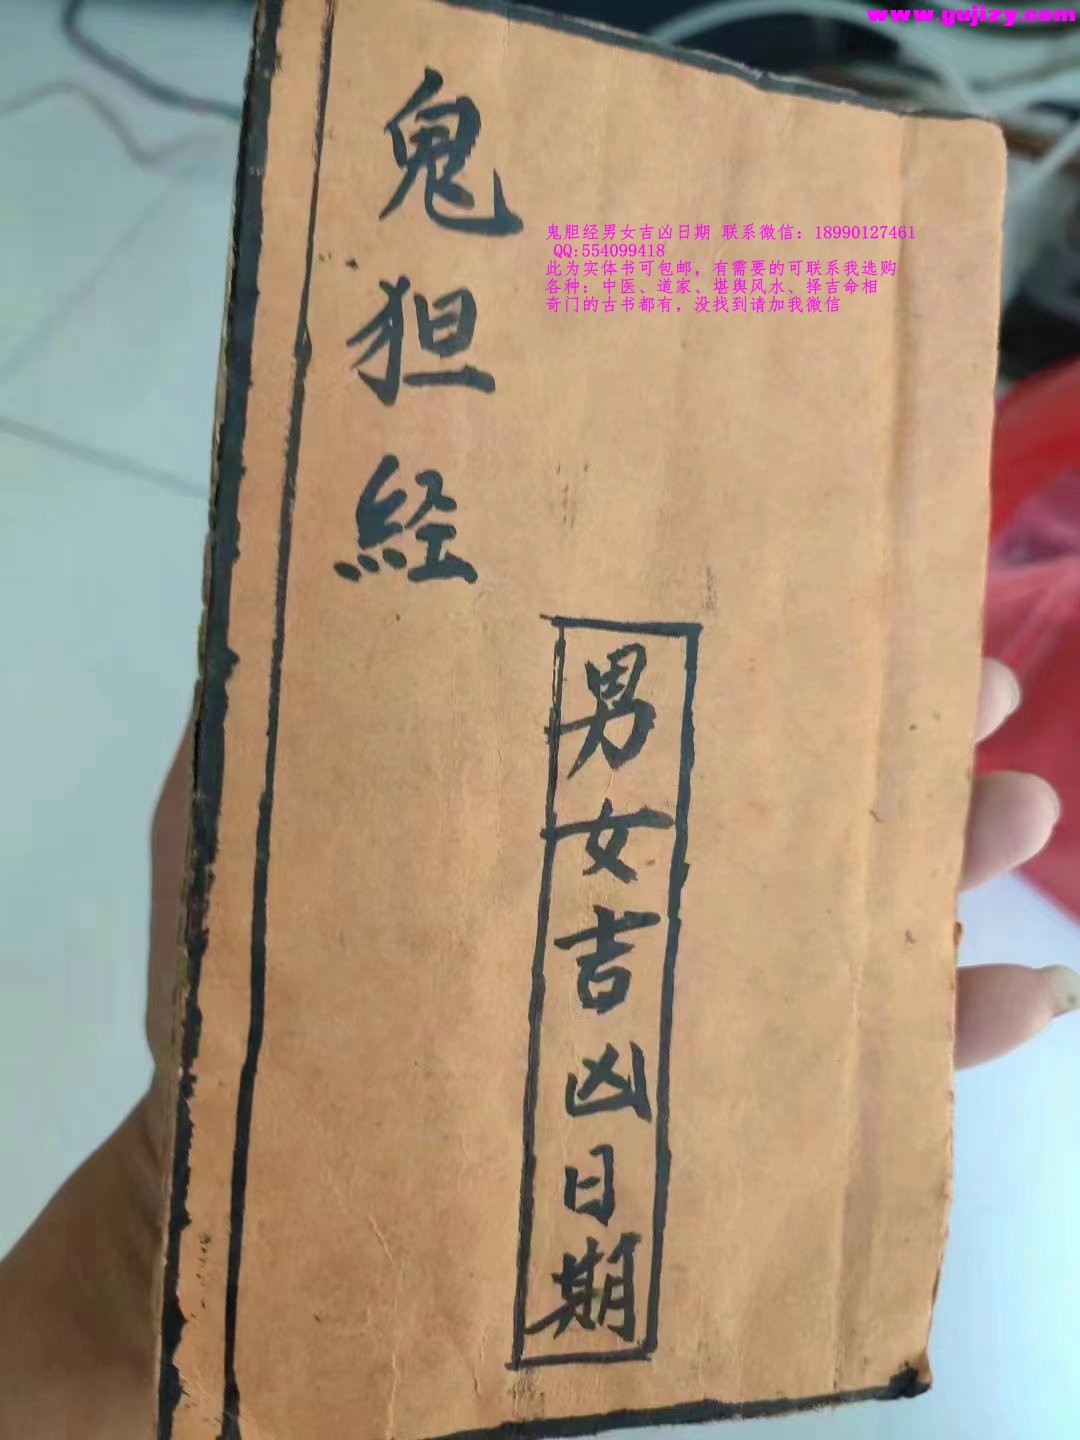 www.gujizy.com
鬼狚経
鬼胆经男女吉凶日期 联系微信：18990127461
QQ:554099418
此为实体书可包邮，有需要的可联系我选购
各种：中医、道家、堪舆风水、择吉命相
奇门的古书都有，没找到请加我微信
男女吉凶日期